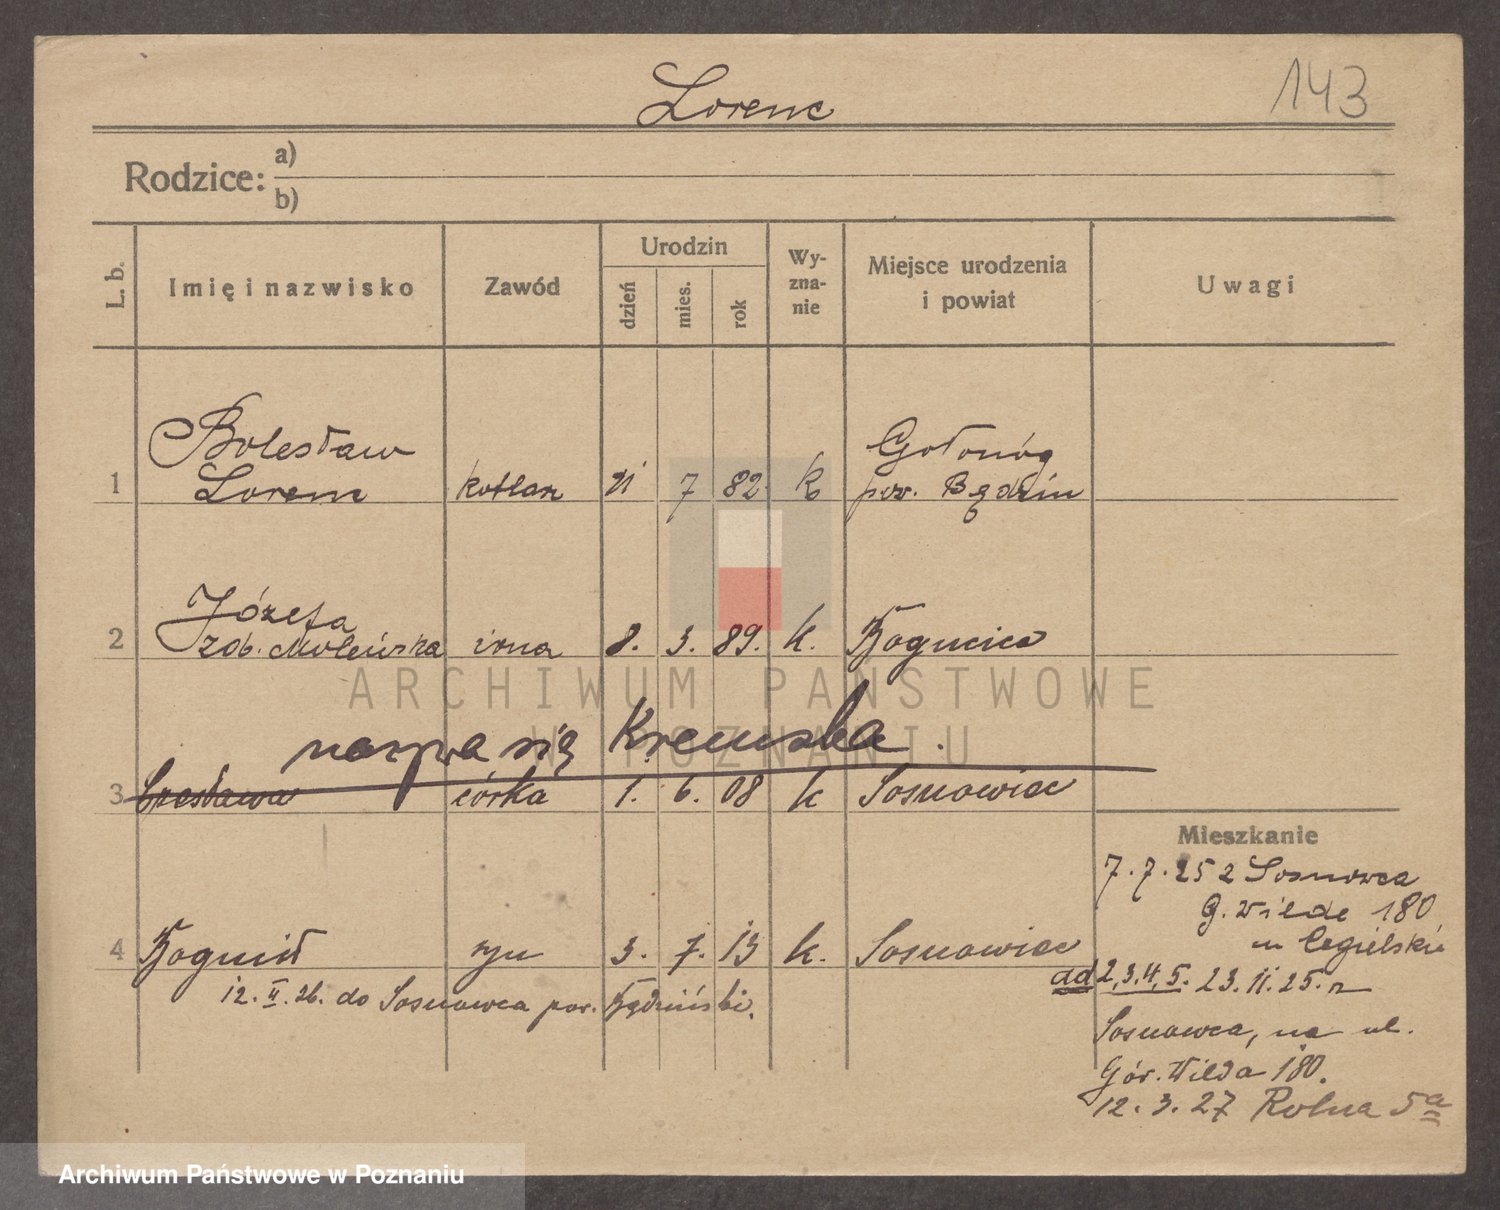 Lorenc
143
Rodzice: a)
b)
L. b.
Imię i nazwisko
Zawód
Urodzin
dzień
mies.
rok
Wy-
zna-
nie
Miejsce urodzenia
i powiat
Uwagi
1 Bolesław
Lorenc kotlarz 21 7 82 k Gołonóg
pow. Będzin
2 Józefa
żona 8. 3. 89. k. Bogucice
ARCHIWUM PAŃSTWOWE
W POZNANIU
nazywa się Kremska.
3 Czesława córka 1. 6. 08 k Sosnowiec
4 Bogumił syn 3. 7. 13 k. Sosnowiec
12. II. 26. do Sosnowca pow. Będziński.
Mieszkanie
7.7.25 z Sosnowca
G. Wilde 180
u Cegielskie
ad 2,3,4,5. 23.11.25. z
Sosnowca, na ul.
Gór. Wilda 180.
12.3.27 Rolna 5a
Archiwum Państwowe w Poznaniu